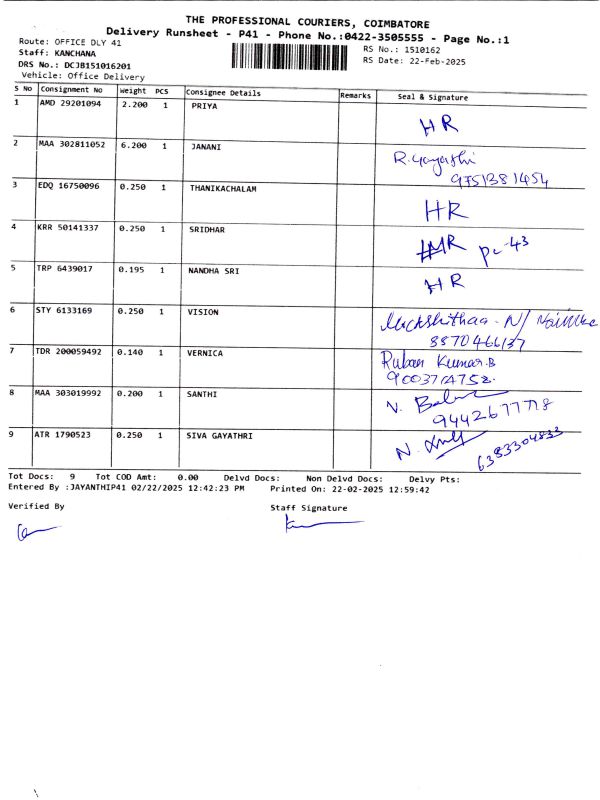 THE PROFESSIONAL COURIERS, COIMBATORE
Delivery Runsheet - P41 - Phone No.:0422-3505555 - Page No.:1
Route: OFFICE DLY 41
Staff: KANCHANA
DRS No.: DCJB151016201
Vehicle: Office Delivery
RS No.: 1510162
RS Date: 22-Feb-2025
S No Consignment No Weight PCS Consignee Details Remarks Seal & Signature
1 AMD 29201094 2.200 1 PRIYA HR
2 MAA 302811052 6.200 1 JANANI R.Gayathri
9751381454
3 EDQ 16750096 0.250 1 THANIKACHALAM HR
4 KRR 50141337 0.250 1 SRIDHAR HR pc-43
5 TRP 6439017 0.195 1 NANDHA SRI HR
6 STY 6133169 0.250 1 VISION
8870466137
7 TDR 200059492 0.140 1 VERNICA Ruban Kumar.B
9003704752.
8 MAA 303019992 0.200 1 SANTHI V.
9442677778
9 ATR 1790523 0.250 1 SIVA GAYATHRI N.
6383304833
Tot Docs: 9 Tot COD Amt: 0.00 Delvd Docs: Non Delvd Docs: Delvy Pts:
Entered By :JAYANTHIP41 02/22/2025 12:42:23 PM Printed On: 22-02-2025 12:59:42
Verified By Staff Signature